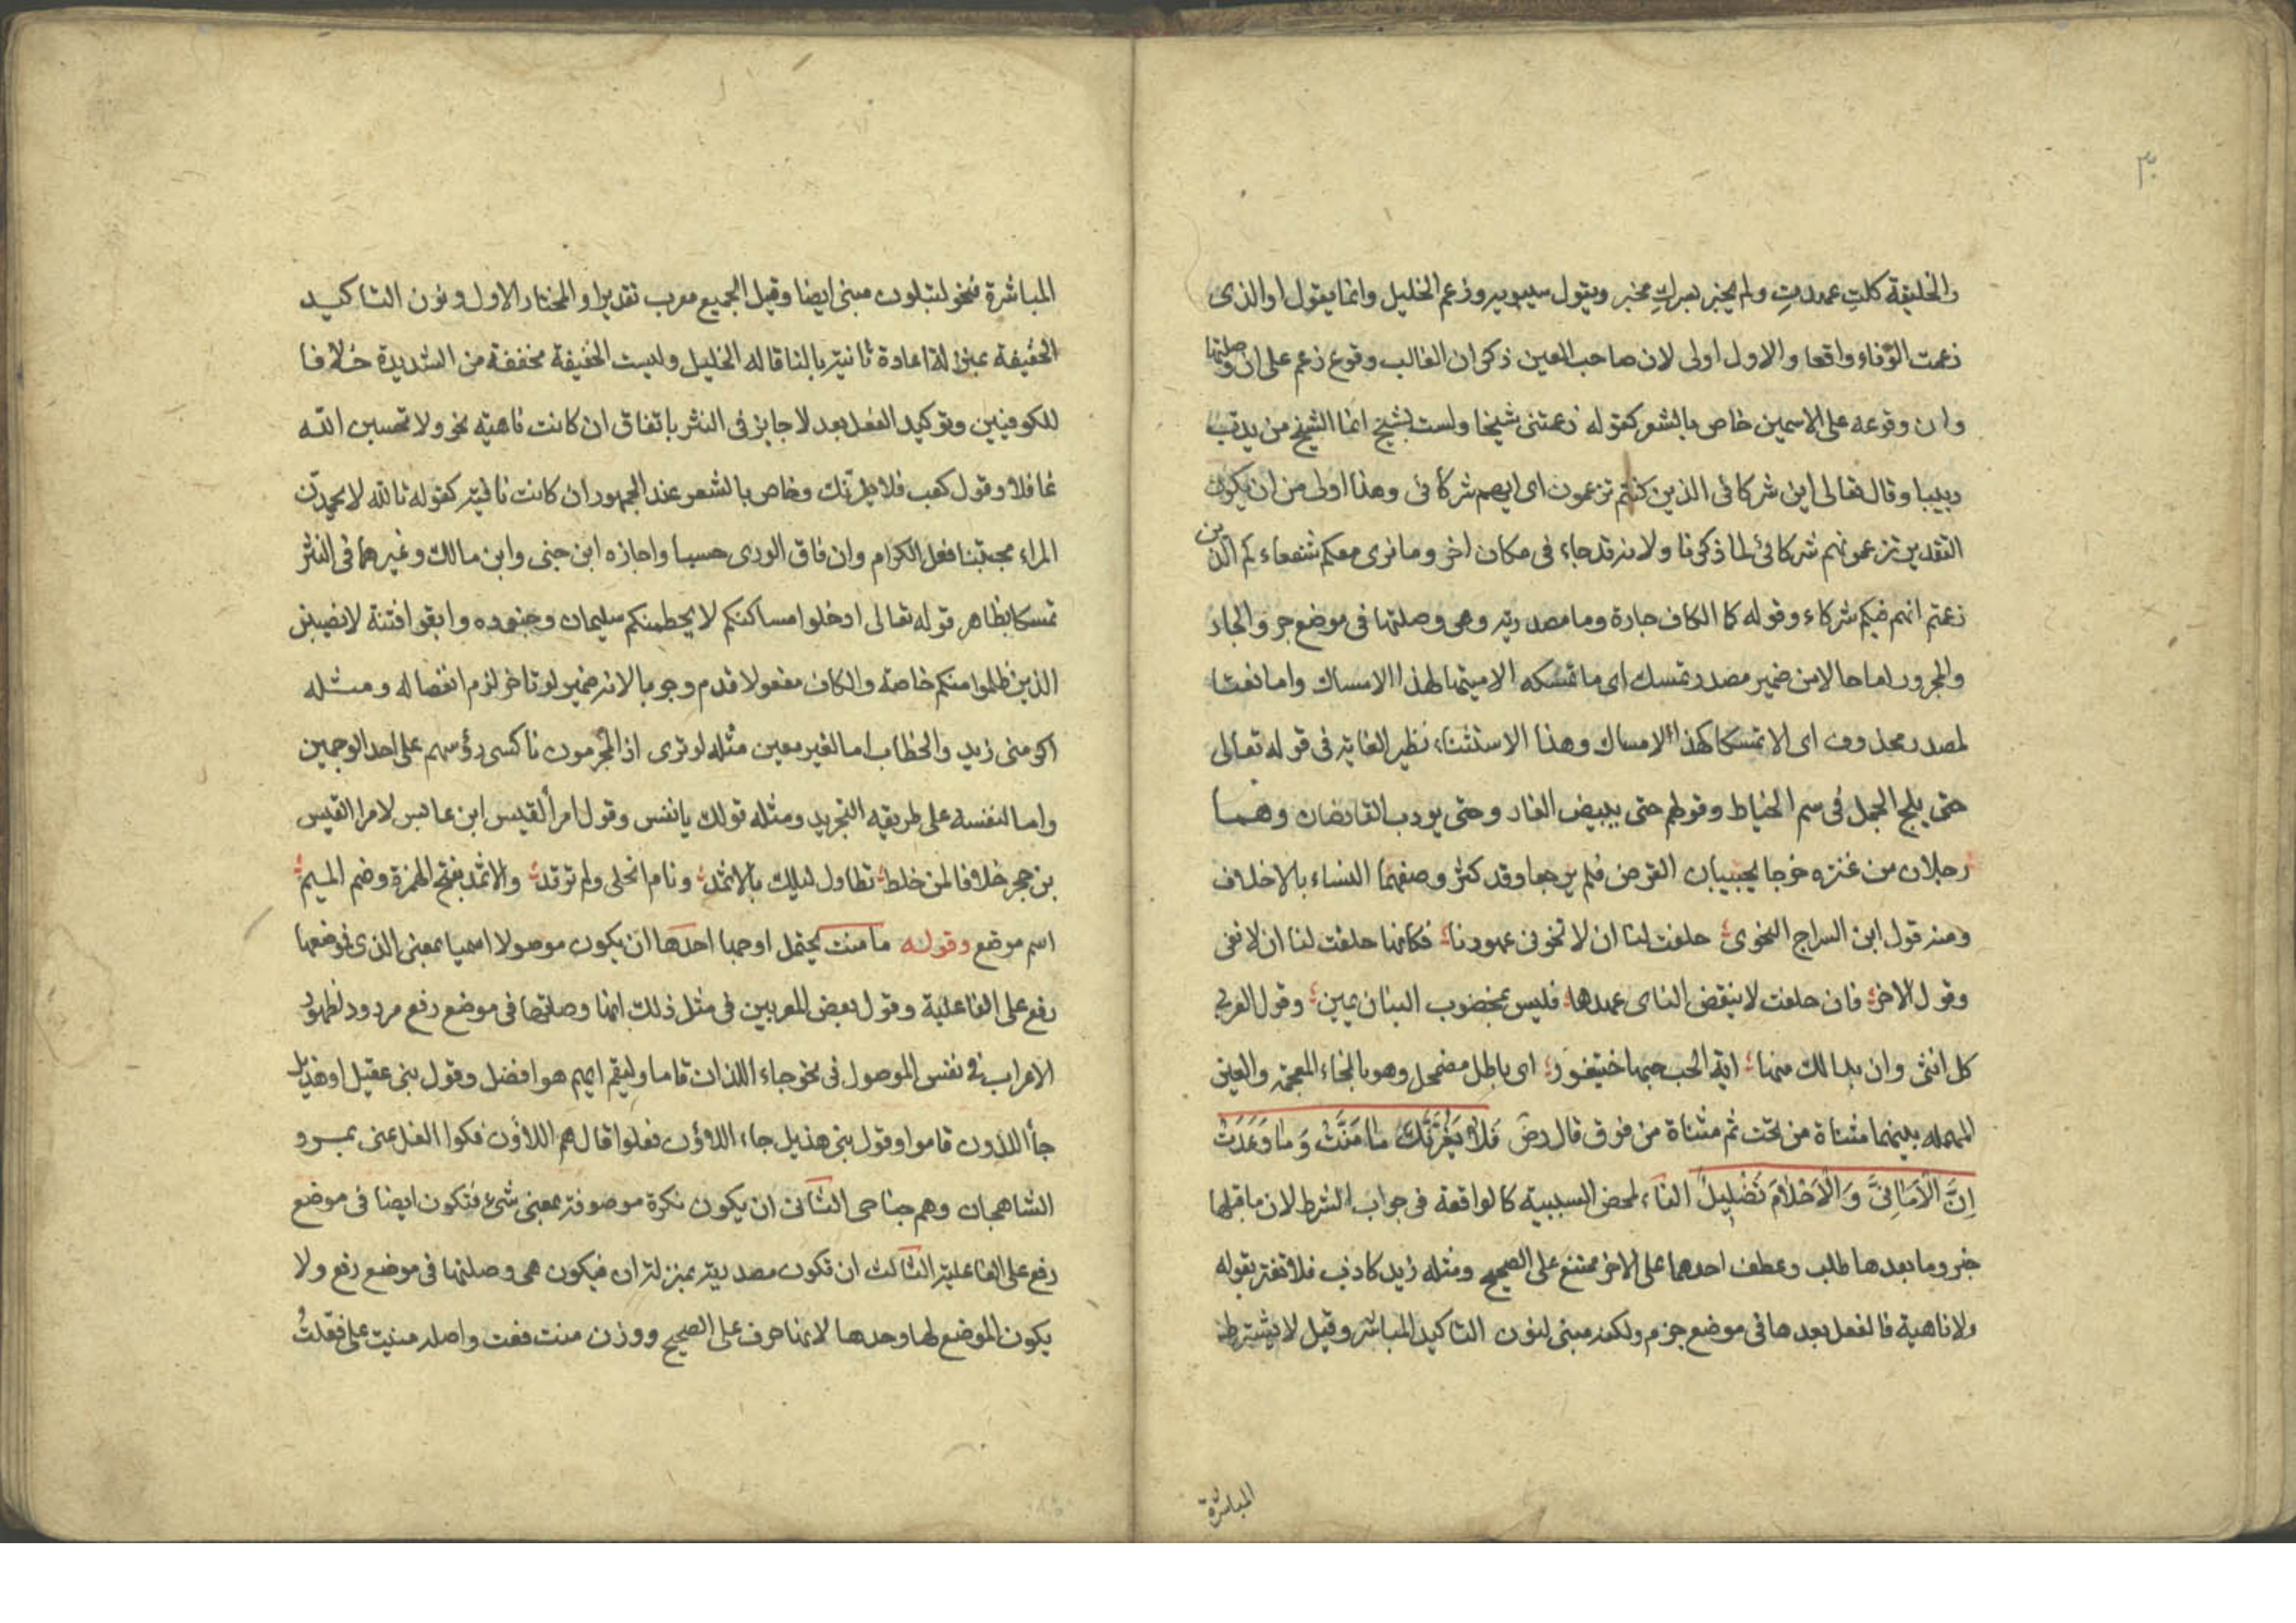 ٣٠
والخليقة كلتِ عمدمتِ ولم يخبر بسركِ مخبر ويقول سيبويه وزعم الخليل وانما يقول او الذى
زعمت الوفاء واقعا والاول اولى لان صاحب العين ذكر ان الغالب وقوع زعم على ان وصلتها
وان وقوعه على الاسمين خاص بالشعر كقوله زعمتنى شيخا ولست بشيخ انما الشيخ من يدب
دبيبا وقال تعالى اين شركائى الذين كنتم تزعمون اى ايهم شركائى وهذا اولى من ان يكون
التقدير تزعمونهم شركائى لما ذكرنا ولانه قد جاء فى مكان اخر وما نرى معكم شفعاءكم الذين
زعمتم انهم فيكم شركاء وقوله كما الكاف جارة وما مصدرية وهى وصلتها فى موضع جر والجار
والمجرور اما حالا من ضمير مصدر تمسك اى ما تمسكه الا مشبها لهذا الامساك واما نعتا
لمصدر محذوف اى الا تمسكا كهذا الامساك وهذا الاستثناء نظير الغاية فى قوله تعالى
حتى يلج الجمل فى سم الخياط وقولهم حتى يبيض الغار وحتى يودب القارضان وهما
رجلان من عنزه خرجا يجنيان القرض فلم يرجعا وقد كثر وصفهما النساء بالاخلاف
ومنه قول ابن السراج النحوى حلفت لنا ان لا تخون عهودنا فكانها حلفت لنا ان لا تفى
وقول الاخر فان حلفت لا ينقض الناى عهدها فليس لمخضوب البنان يمين وقول العربى
كل انثى وان بدا لك منها اية الحب حبها خيتعور اى باطل مضمحل وهو بالخاء المعجمه والعين
المهمله بينهما مثناة من تحت ثم مثناة من فوق قال رض فَلَا يَغُرَّنَّكَ مَا مَنَّتْ وَمَا وَعَدَتْ
اِنَّ الْاَمَانِىَّ وَالْاَحْلَامَ تَضْلِيلُ الفاء لمحض السببية كالواقعة فى جواب الشرط لان ما قبلها
خبر وما بعدها طلب وعطف احدهما على الاخر ممتنع على الصحيح ومثله زيد كاذب فلا تغتر بقوله
ولا ناهية فالفعل بعدها فى موضع جزم ولكنه مبنى لنون التاكيد المباشره وقيل لا يشترط
المباشرة
المباشرة فنحو لتبلون مبنى ايضا وقيل الجميع معرب تقديرا والمختار الاول ونون التاكيد
الخفيفة بمنزلة اعادة ثانية بالنا قاله الخليل وليست الخفيفة مخففة من الشديدة خلافا
للكوفيين وتوكيد الفعل بعد لا جايز فى النثر باتفاق ان كانت ناهية نحو ولا تحسبن الله
غافلا وقول كعب فلا يغرنك وخاص بالشعر عند الجمهور ان كانت نافية كقوله تالله لا يحمدن
المراء مجتبنا فعل الكرام وان فاق الورى حسبا واجازه ابن جنى وابن مالك وغيرهما فى النثر
تمسكا بظاهر قوله تعالى ادخلوا مساكنكم لا يحطمنكم سليمان وجنوده واتقوا فتنة لا تصيبن
الذين ظلموا منكم خاصة والكاف مفعولا قدم وجوبا لانه ضمير لو تاخر لزم انفصاله ومثله
اكرمنى زيد والخطاب اما لغير معين مثله لو ترى اذ المجرمون ناكسى رؤسهم على احد الوجهين
واما لنفسه على طريقه التجريد ومثله قولك يا نفس وقول امرأ القيس ابن عابس لامرا القيس
بن حجر خلافا لمن خلط تطاول ليلك بالاثمد ونام الخلى ولم ترقد والاثمد بفتح الهمزة وضم الميم
اسم موضع وقوله ما منت يحتمل اوجها احدها ان يكون موصولا اسميا بمعنى الذى فموضعها
رفع على الفاعلية وقول بعض المعربين فى مثل ذلك انها وصلتها فى موضع رفع مردود لظهور
الاعراب فى نفس الموصول فى نحو جاء اللذان قاما وليقم ايهم هو افضل وقول بنى عقيل او هذيل
جاأ اللذون قاموا وقول بنى هذيل جاء اللاؤن فعلوا قال هم اللاؤن فكوا الغل عنى بمرو
الشاهجان وهم جناحى الثانى ان يكون نكرة موصوفة بمعنى شئ فتكون ايضا فى موضع
رفع على الفاعلية الثالث ان تكون مصدرية بمنزلة ان فيكون هى وصلتها فى موضع رفع ولا
يكون الموضع لها وحدها لانها حرف على الصحيح ووزن منت فعت واصله منيت على فعلت